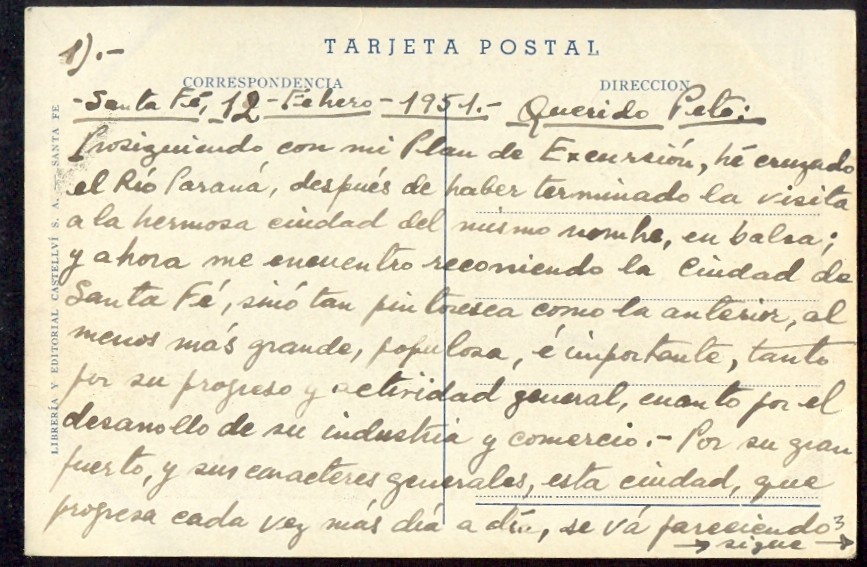 1).-
TARJETA POSTAL
CORRESPONDENCIA
DIRECCION
-Santa Fé, 12-Febrero-1951.- Querido Peto:
Prosiguiendo con mi Plan de Excursión, hé cruzado
el Río Paraná, después de haber terminado la visita
a la hermosa ciudad del mismo nombre, en balsa;
y ahora me encuentro recorriendo la Ciudad de
Santa Fé, sinó tan pintoresca como la anterior, al
menos más grande, populosa, é importante, tanto
por su progreso y actividad general, cuanto por el
desarrollo de su industria y comercio.- Por su gran
puerto, y sus caracteres generales, esta ciudad, que
progresa cada vez más día a día, se vá pareciendo
→ sigue →
LIBRERÍA Y EDITORIAL CASTELLVÍ S. A. - SANTA FE